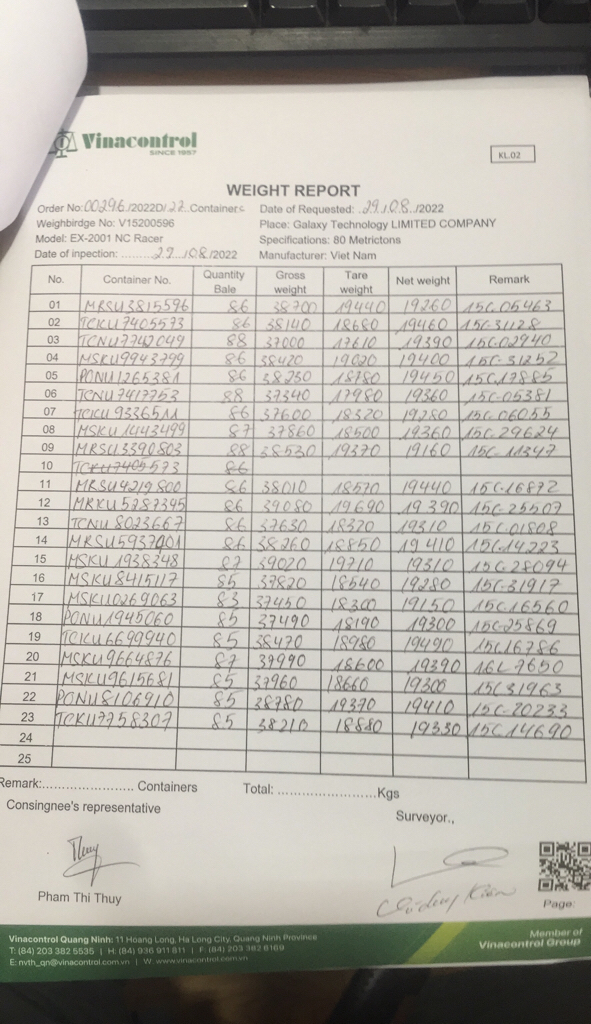 Vinacontrol
SINCE 1957
KL.02
WEIGHT REPORT
Order No: 00296/2022D/22 Containers Date of Requested: 29/08/2022
Weighbirdge No: V15200596 Place: Galaxy Technology LIMITED COMPANY
Model: EX-2001 NC Racer Specifications: 80 Metrictons
Date of inpection: ........29/08/2022 Manufacturer: Viet Nam
No. Container No. Quantity Bale Gross weight Tare weight Net weight Remark
01 MRSU3815596 86 38700 19440 19260 15C.05463
02 TCKU7405573 86 38140 18680 19460 15C-31128
03 TCNU7742049 88 37000 17610 19390 15C.02940
04 MSKU9943799 86 38420 19020 19400 15C-31252
05 PONU1265381 86 38230 18780 19450 15C17885
06 TCNU7417753 88 37340 17980 19360 15C-05381
07 TCKU9336511 86 37600 18320 19280 15C.06055
08 MSKU1443499 87 37860 18500 19360 15C-29624
09 MRSU3390803 88 38530 19370 19160 15C-11347
10 TCKU7405573 86
11 MRSU4219800 86 38010 18570 19440 15C-16872
12 MRKU5787395 86 39080 19690 19390 15C-25507
13 TCNU8023667 86 37630 18320 19310 15C.01808
14 MRSU5937001 86 38260 18850 19410 15C.14223
15 MSKU1938348 87 39020 19710 19310 15C-28094
16 MSKU8415117 85 37820 18540 19280 15C-31917
17 MSKU0269063 83 37450 18300 19150 15C16560
18 PONU1945060 85 37490 18190 19300 15C-25869
19 TCKU6699940 85 38470 18980 19490 15C16786
20 MSKU9664876 87 39990 18600 19390 16L7650
21 MSKU9615681 85 37960 18660 19300 15C31963
22 PONU8106910 85 38780 19370 19410 15C-20233
23 TCKU7758307 85 38210 18880 19330 15C14690
24
25
Remark:....................... Containers Total: ........................Kgs
Consingnee's representative Surveyor.,
Pham Thi Thuy
Page:
Vinacontrol Quang Ninh: 11 Hoang Long, Ha Long City, Quang Ninh Province
T: (84) 203 382 5535 | H: (84) 936 911 811 | F: (84) 203 382 6169
E: nvth_qn@vinacontrol.com.vn | W: www.vinacontrol.com.vn
Member of
Vinacontrol Group